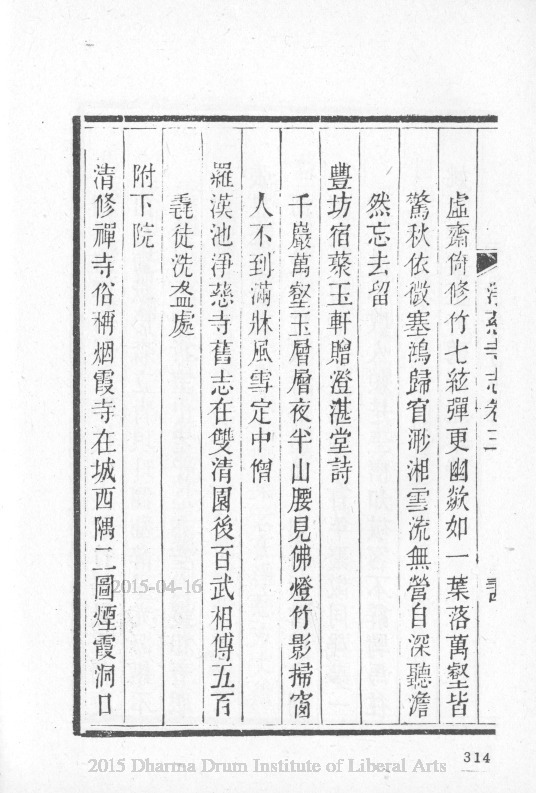 淨慈寺志卷三
虛齋倚修竹七絃彈更幽歘如一葉落萬壑皆
驚秋依微塞鴻歸窅渺湘雲流無營自深聽澹
然忘去留
豐坊宿藥玉軒贈澄湛堂詩
千巖萬壑玉層層夜半山腰見佛燈竹影掃窗
人不到滿牀風雪定中僧
羅漢池淨慈寺舊志在雙清園後百武相傳五百
毳徒洗盋處
附下院
清修禪寺俗稱烟霞寺在城西隅二圖煙霞洞口
2015-04-16
314
2015 Dharma Drum Institute of Liberal Arts